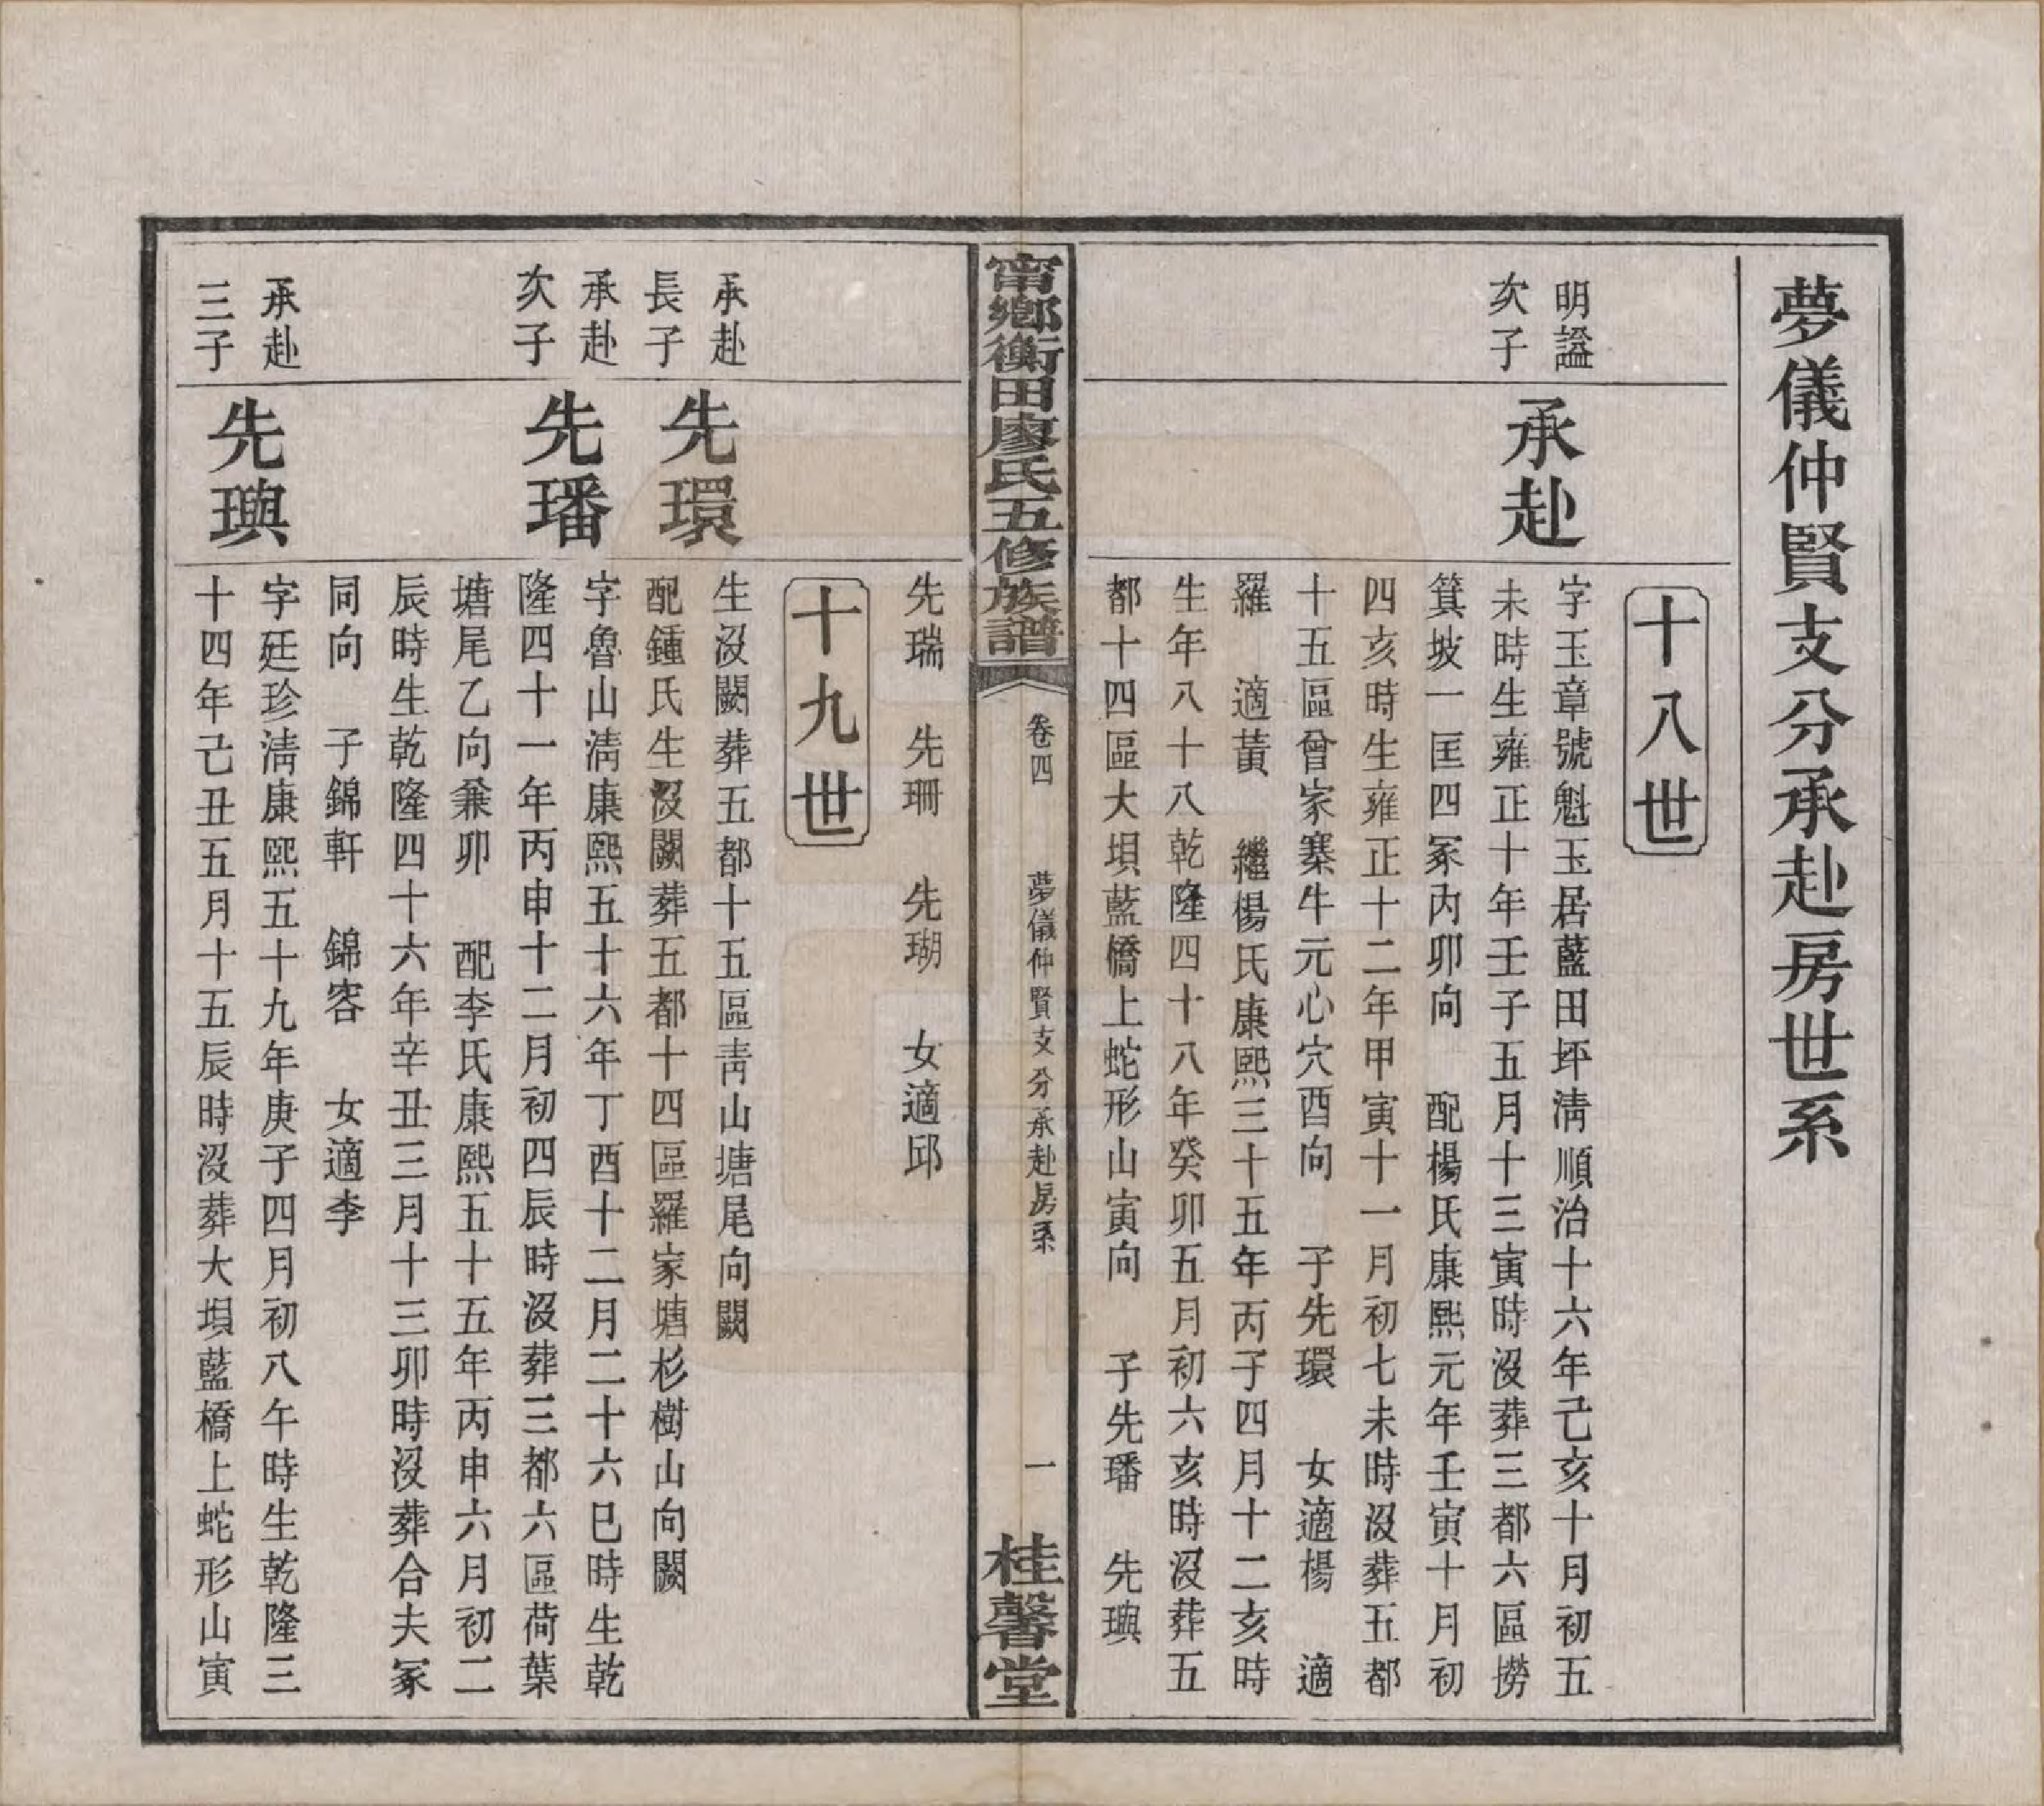 夢儀仲賢支分承赴房世系
十八世
明謚
次子
承赴
字玉章號魁玉居藍田坪淸順治十六年己亥十月初五
未時生雍正十年壬子五月十三寅時沒葬三都六區撈
箕坡一匡四冢內卯向　配楊氏康熙元年壬寅十月初
四亥時生雍正十二年甲寅十一月初七未時沒葬五都
十五區曾家寨牛元心穴酉向　子先環　女適楊　適
羅　適黃　繼楊氏康熙三十五年丙子四月十二亥時
生年八十八乾隆四十八年癸卯五月初六亥時沒葬五
都十四區大垻藍橋上蛇形山寅向　子先璠　先璵
甯鄉衡田廖氏五修族譜
卷四
夢儀仲賢支分承赴房系
一
桂馨堂
先瑞　先珊　先瑚　女適邱
十九世
承赴
長子
先環
生沒闕葬五都十五區靑山塘尾向闕
配鍾氏生沒闕葬五都十四區羅家塘杉樹山向闕
承赴
次子
先璠
字魯山淸康熙五十六年丁酉十二月二十六巳時生乾
隆四十一年丙申十二月初四辰時沒葬三都六區荷葉
塘尾乙向兼卯　配李氏康熙五十五年丙申六月初二
辰時生乾隆四十六年辛丑三月十三卯時沒葬合夫冢
同向　子錦軒　錦容　女適李
承赴
三子
先璵
字廷珍淸康熙五十九年庚子四月初八午時生乾隆三
十四年己丑五月十五辰時沒葬大垻藍橋上蛇形山寅